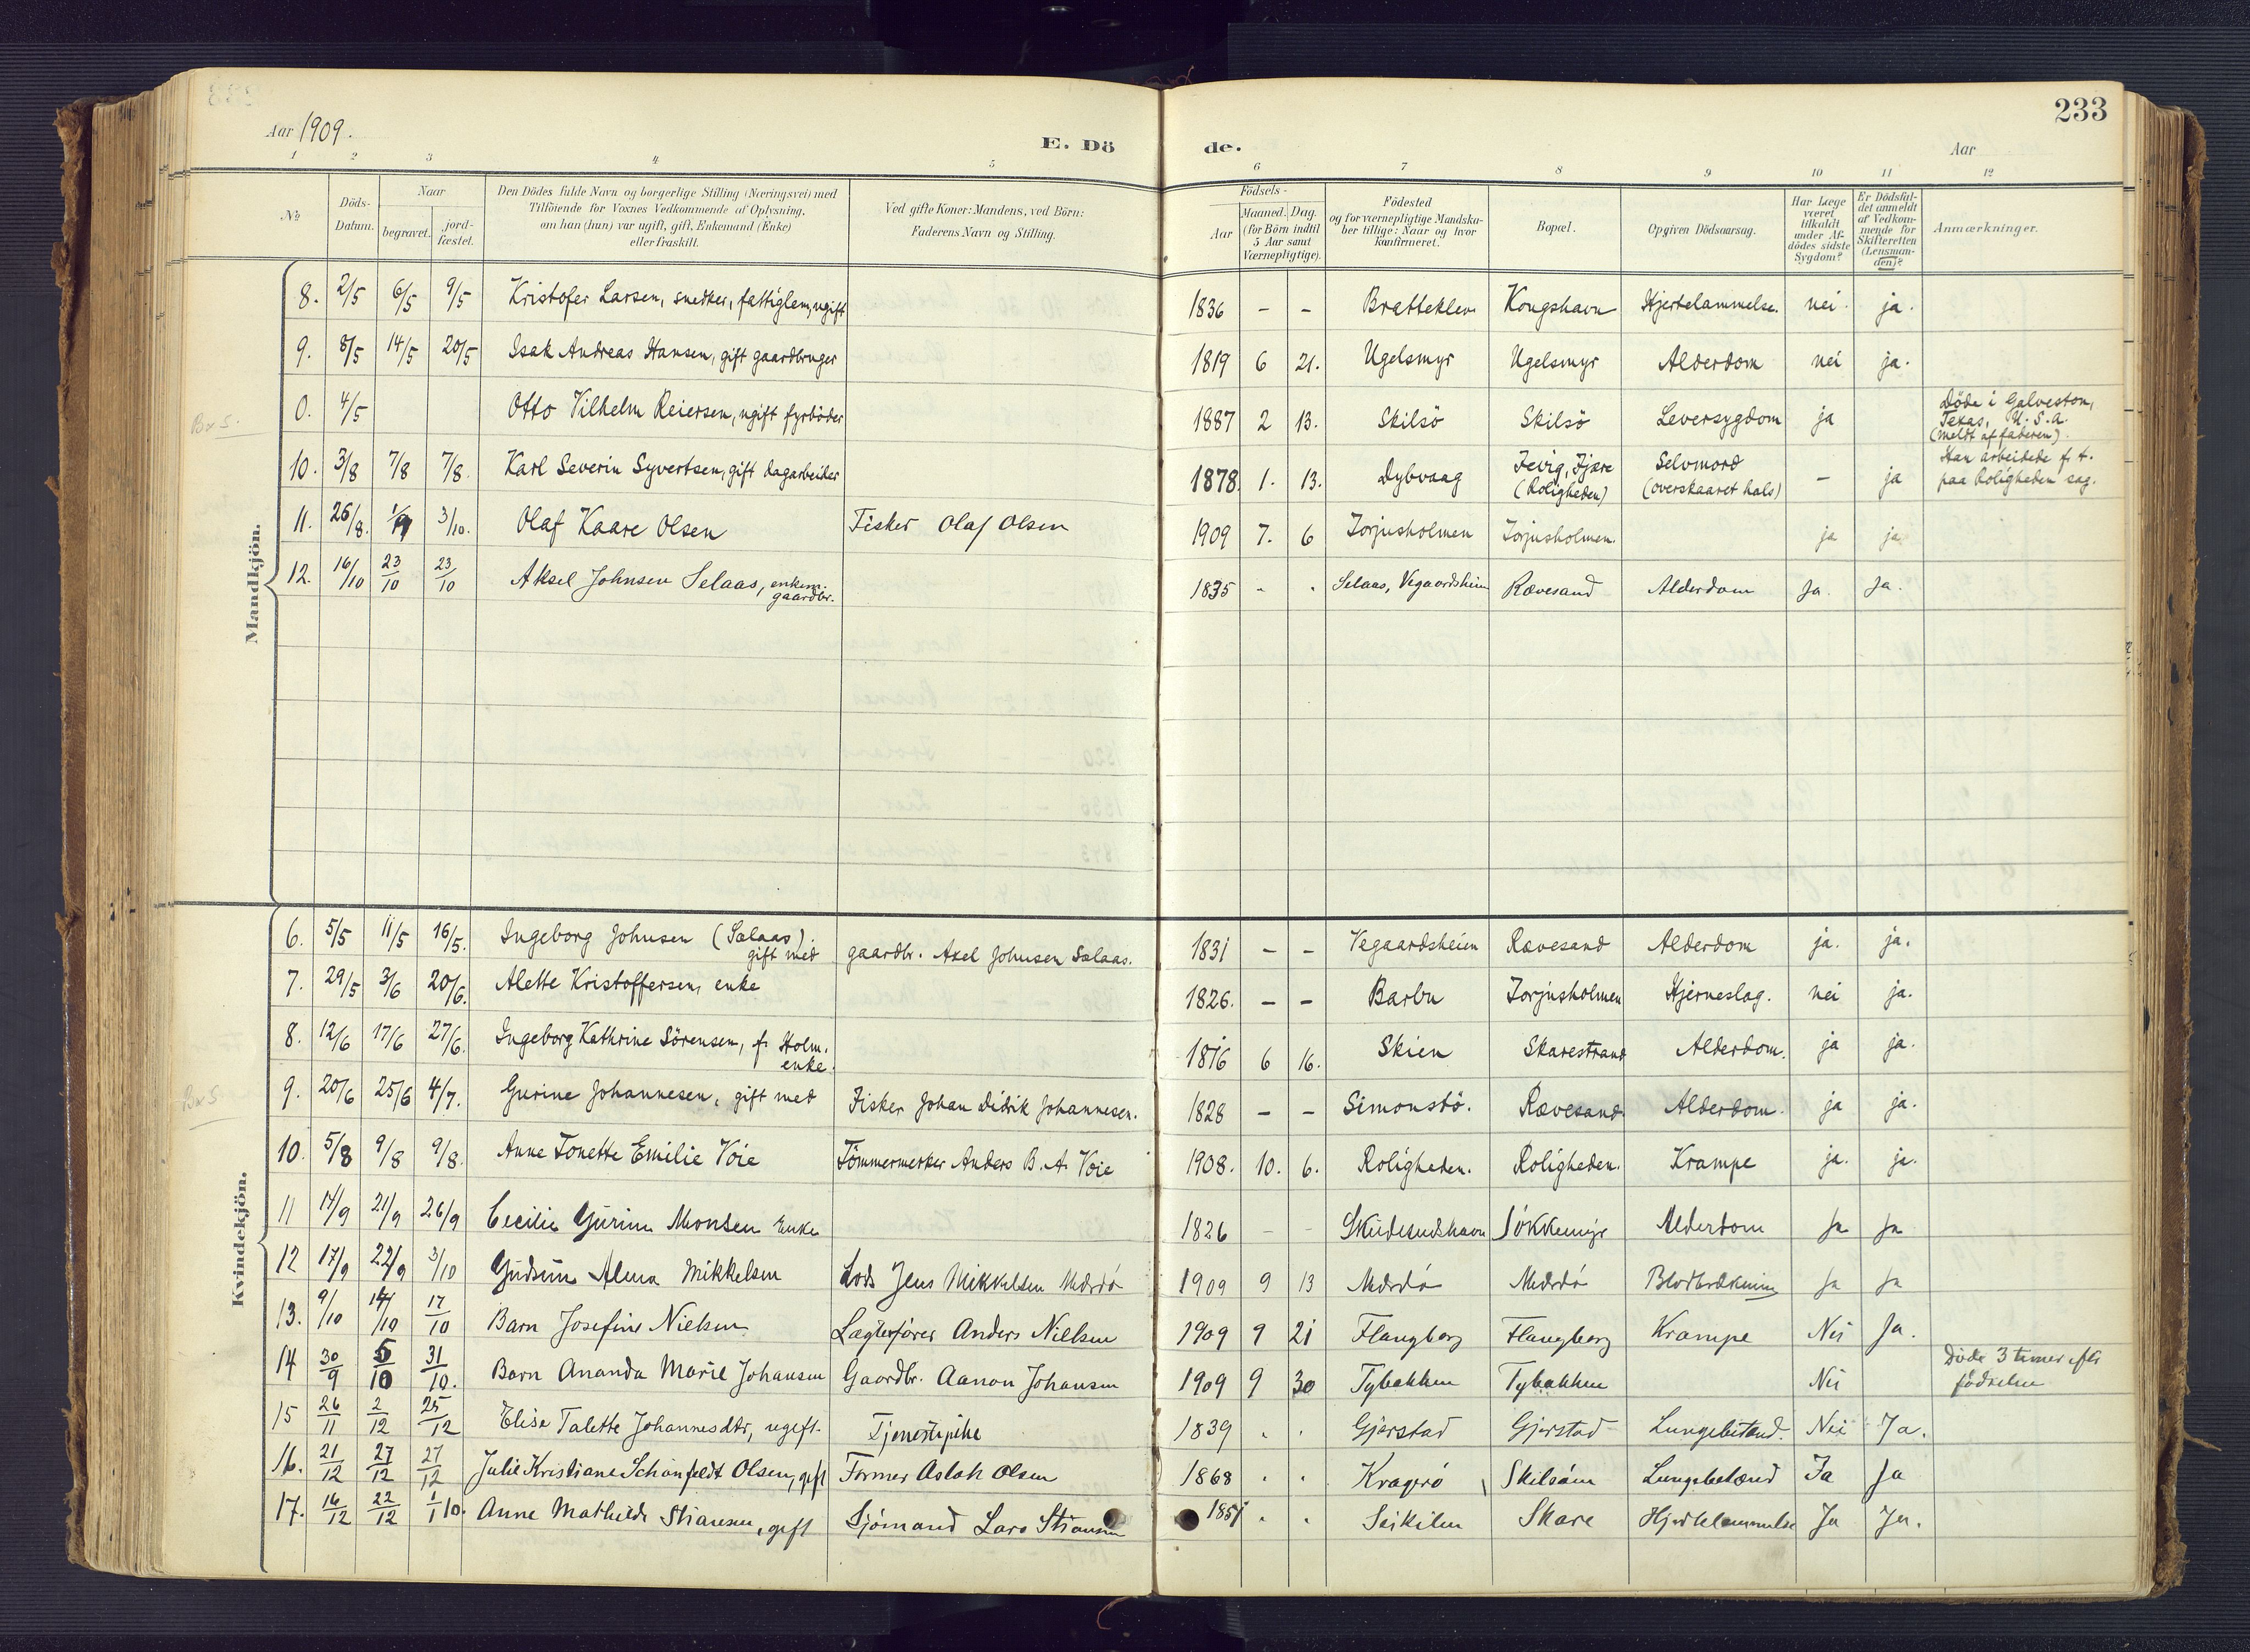 233
Aar 1909.
E. Dö de.
Aar
1 2 3 4 5 6 7 8 9 10 11 12
№
Döds-Datum.
Naar
begravet.
jord-fæstet.
Den Dödes fulde Navn og borgerlige Stilling (Næringsvei) med
Tilföiende for Voxnes Vedkommende af Oplysning,
om han (hun) var ugift, gift, Enkemand (Enke)
eller fraskilt.
Ved gifte Koner: Mandens, ved Börn:
Faderens Navn og Stilling.
Födsels-
Aar
Maaned. Dag.
(for Börn indtil
5 Aar samt
Værnepligtige).
Födested
og for værnepligtige Mandska-
ber tillige: Naar og hvor
konfirmeret.
Bopæl.
Opgiven Dödsaarsag.
Har Læge
været
tilkaldt
under Af-
dödes sidste
Sygdom?
Er Dödsfal-
det anmeldt
af Vedkom-
mende for
Skifteretten
(Lensman-
den)?
Anmærkninger.
Mandkjön.
8. 2/5 6/5 9/5 Kristofer Larsen, snedker, fattiglem, ugift 1836 - - Bratteklev Kongshavn Hjertelammelse. nei. ja.
9. 8/5 14/5 20/5 Isak Andreas Hansen, gift gaardbruger 1819 6 21. Ugelsmyr Ugelsmyr Alderdom nei ja.
0. 4/5 Otto Vilhelm Reiersen, ugift fyrböder 1887 2 13. Skilsö Skilsö Leversygdom ja Döde i Galveston,
Texas, U.S.A.
(meldt af faderen).
10. 3/8 7/8 7/8. Karl Severin Syvertsen, gift dagarbeider 1878. 1. 13. Dybvaag Fevig, Fjære
(Roligheden) Selvmord
(overskaaret hals) - ja Han arbeidede f. t.
paa Roligheden sag.
11. 26/8. 3/10. Olaf Kaare Olsen Fisker Olaf Olsen 1909 7. 6 Torjusholmen Torjusholmen. ja ja
12. 16/10 23/10 23/10 Aksel Johnsen Selaas, enkem.
gaardbr. 1835 - . Selaas, Vegaardsheim Rævesand Alderdom Ja. Ja.
Kvindekjön.
6. 5/5 11/5 16/5. Ingeborg Johnsen (Salaas).
gift med gaardbr. Axel Johnsen Salaas. 1831 - - Vegaardsheien Rævesand Alderdom ja. ja.
7. 29/5 3/6 20/6. Alette Kristoffersen, enke 1826. - - Barbu Torjusholmen Hjerneslag. nei ja.
8. 12/6 17/6 27/6. Ingeborg Kathrine Sörensen, f. Holm.
enke. 1816 6 16. Skien Skarestrand Alderdom. ja ja.
9. 20/6 25/6 4/7. Gurine Johannesen, gift med Fisker Johan Didrik Johannesen. 1828 - - Simonstö. Rævesand Alderdom. ja ja.
10. 5/8 9/8 9/8. Anne Tonette Emilie Voie Tömmermerker Anders B. A. Voie 1908. 10. 6. Roligheden. Roligheden. Krampe ja. ja.
11 21/9 26/9 Cecilie Gurine Monsen Enke 1826 - - Alderdom Ja Ja
12 17/9 22/9 3/10 Gudrun Alma Mikkelsen Lods Jens Mikkelsen Mærdö 1909 9 13 Mærdö Mærdö Blodbrækning Ja Ja
13. 9/10 14/10 17/10 Barn Josefine Nielsen Lægterfører Anders Nielsen 1909 9 21 Flangborg Flangborg Krampe Nei Ja.
14 30/9 5/10 31/10. Barn Ananda Marie Johansen Gaardbr. Aanon Johansen 1909 9 30 Tybakken Tybakken Nei Döde 3 timer efter
födselen
15 26/11 2/12 25/12 Elise Talette Johannesdtr, ugift. Tjenestepike 1839 . . Gjerstad Gjerstad Lungebetænd. Nei Ja.
16. 21/12 27/12 27/12 Julie Kristiane Schönfeldt Olsen, gift Former Aslak Olsen 1868 . . Kragerö Skilsöen Lungebetænd Ja Ja
17. 16/12 22/12 1/1 10. Anne Mathilde Stiansen, gift Sjömand Lars Stiansen 1851 . . Skare Hjertelammelse Ja Ja.